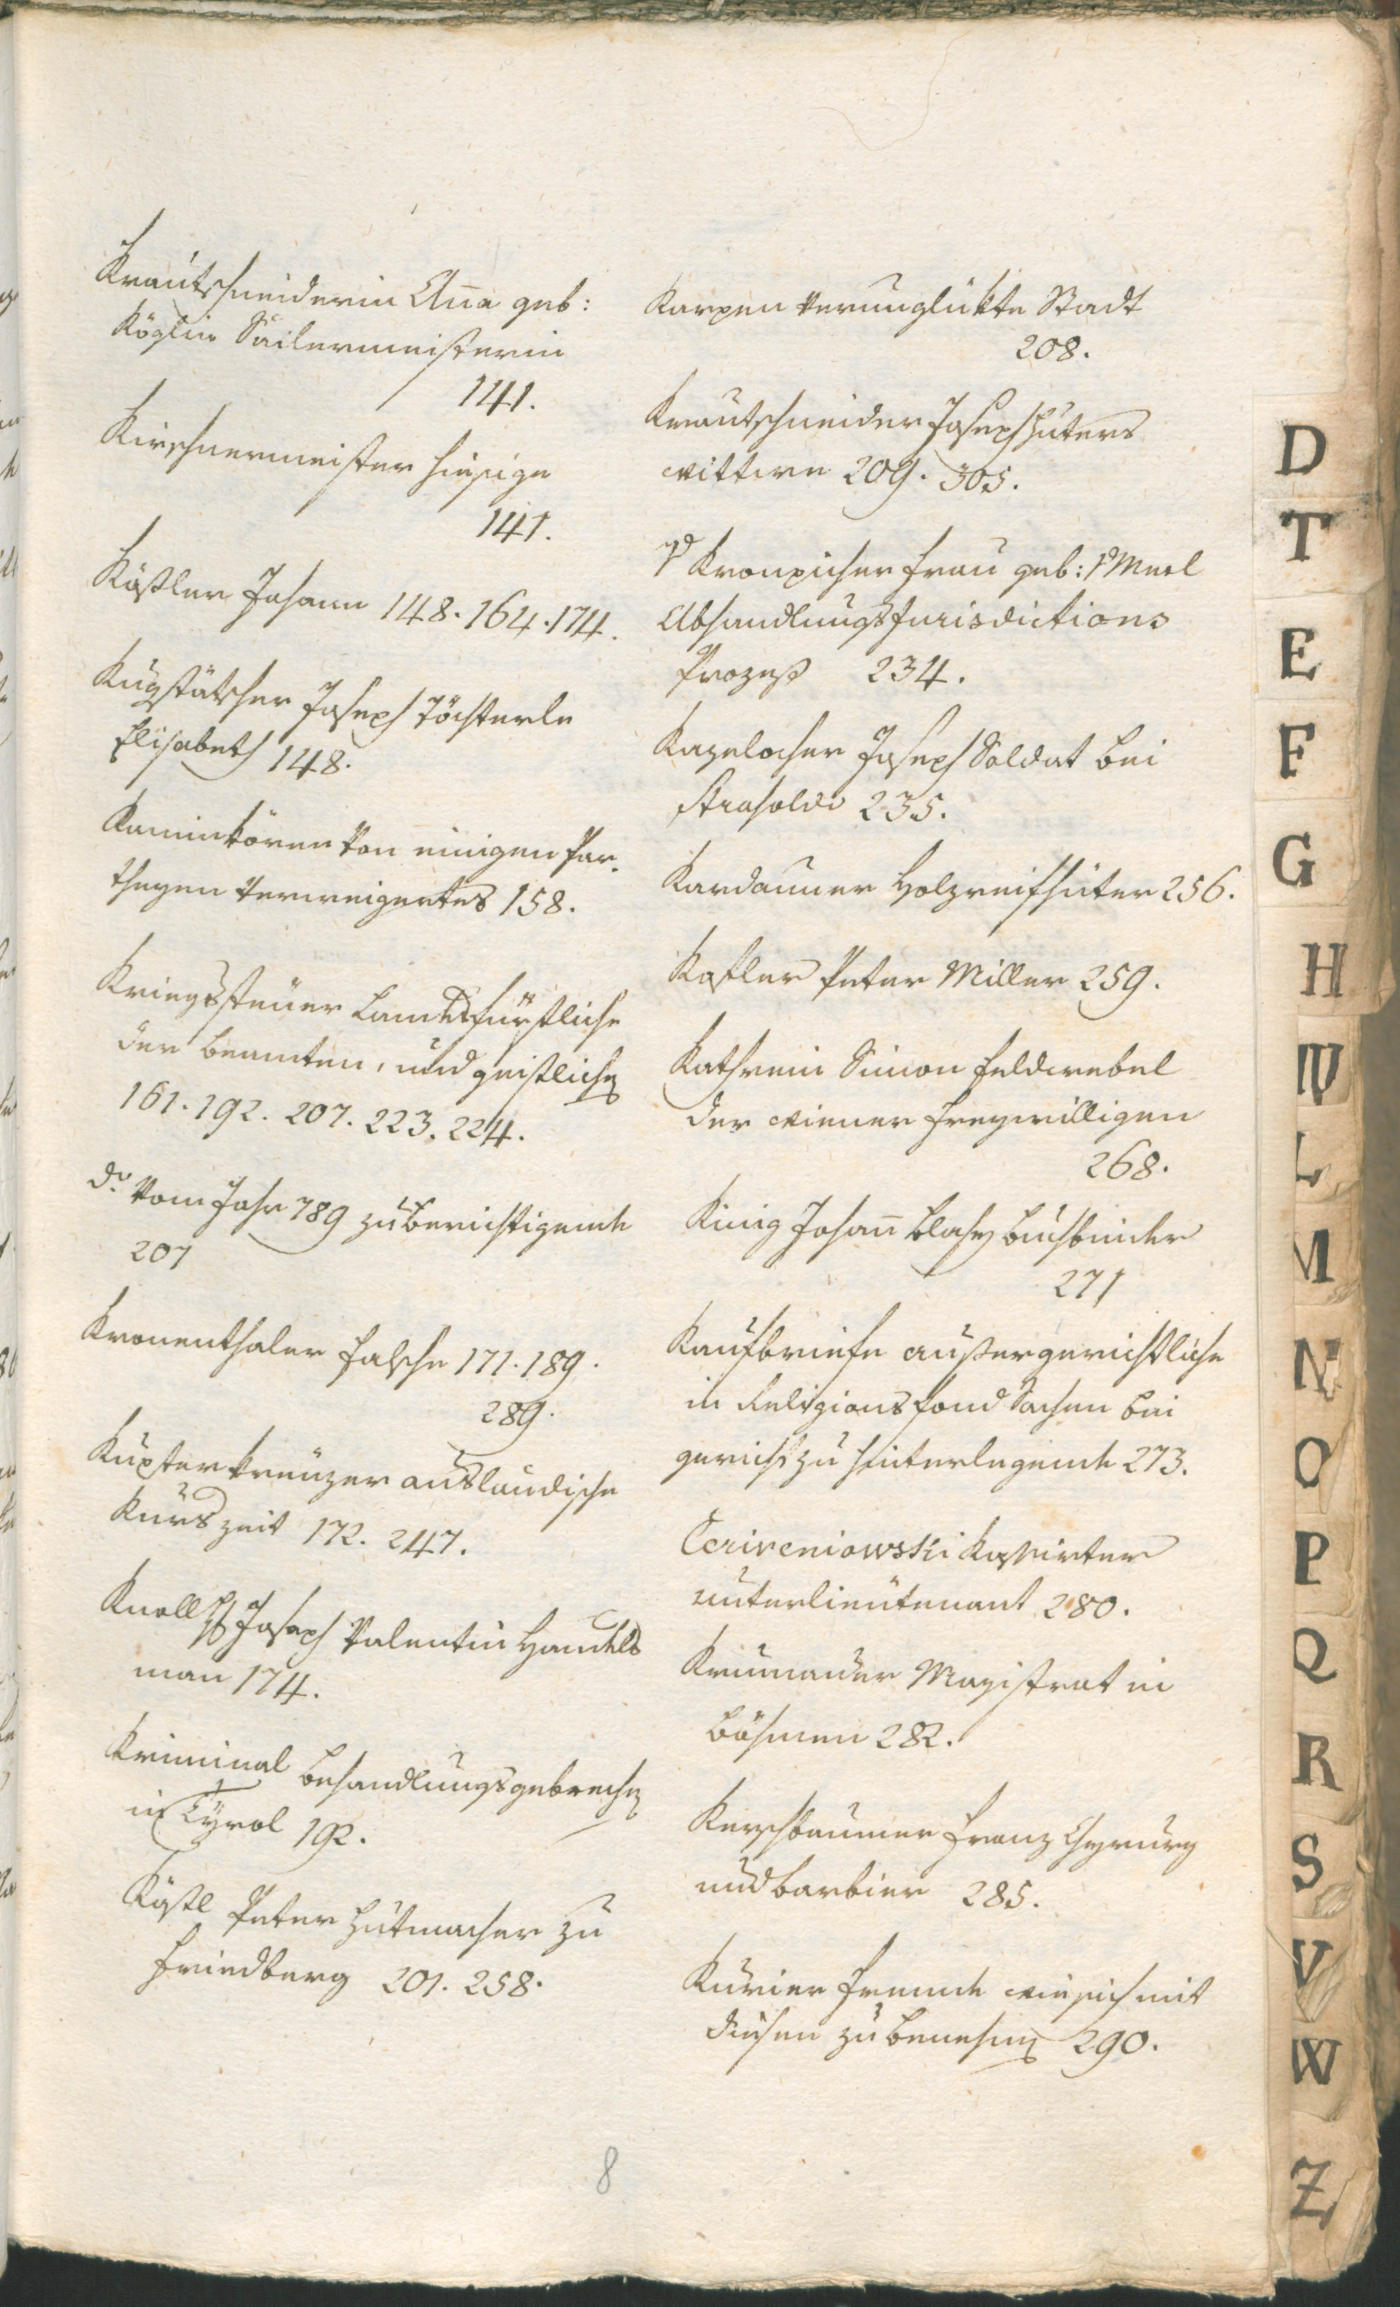 Krautschneiderin Anna geb:
Köglin Sailermeisterin
141.
Kirschnermeister hiesige
141.
Köstler Johann 148. 164. 174.
Joseph Töchterle
Elisabeth 148.
Kaminkören von einigen Par-
theyen verweigertes 158.
Kriegssteuer Landsfürstliche
der Beamten, und geistlichen
161. 192. 207. 223. 224.
do. vom Jahr 789 zuberichtigende
207
Kronenthaler falsche 171. 189.
289.
Kupferkreuzer ausländische
Kurszeit 172. 247.
Knoll Joseph Valentin Handels
man 174.
Kriminal Behandlungsgebrechen
in Tyrol 192.
Köstl Peter Hutmacher zu
Friedberg 201. 258.
Karpen verunglükte Stadt
208.
Krautschneider Joseph Huters
wittwe 209. 305.
v Kronpicher Frau geb: v Merl
Abhandlungs Jurisdictions
Prozeß 234.
Kazelocher Joseph Soldat bei
235.
Kardauner Holzreifhüter 256.
Kofler Peter Miller 259.
Kathrein Simon Feldwebel
der wiener Freywilligen
268.
Kinig Johann Blasy Buchbinder
271
Kaufbriefe aussergerichtliche
in Religionsfond Sachen bei
gericht zu hinterlegende 273.
Kassierter
unterlieutenant 280.
Krumauer Magistrat in
Böhmen 282.
Kerschbaumer Franz Chyrurg
und barbier 285.
Kurier fremde wie sich mit
diesen zu benehmen 290.
8
D
T
E
F
G
H
IV
L
M
N
O
P
Q
R
S
V
W
Z